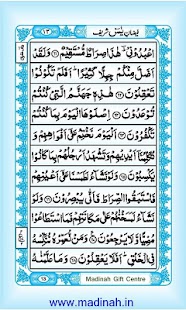 فیضانِ یٰسٓ شریف ١٣
اعْبُدُوْنِیْ ؕ هٰذَا صِرَاطٌ مُّسْتَقِیْمٌ ۝ وَلَقَدْ
اَضَلَّ مِنْكُمْ جِبِلًّا كَثِیْرًا ؕ اَفَلَمْ تَكُوْنُوْا
تَعْقِلُوْنَ ۝ هٰذِهٖ جَهَنَّمُ الَّتِیْ كُنْتُمْ
تُوْعَدُوْنَ ۝ اِصْلَوْهَا الْیَوْمَ بِمَا كُنْتُمْ
تَكْفُرُوْنَ ۝ اَلْیَوْمَ نَخْتِمُ عَلٰۤی اَفْوَاهِهِمْ
وَتُكَلِّمُنَاۤ اَیْدِیْهِمْ وَتَشْهَدُ اَرْجُلُهُمْ بِمَا كَانُوْا
یَكْسِبُوْنَ ۝ وَلَوْ نَشَآءُ لَطَمَسْنَا عَلٰۤی اَعْیُنِهِمْ
فَاسْتَبَقُوا الصِّرَاطَ فَاَنّٰی یُبْصِرُوْنَ ۝ وَلَوْ
نَشَآءُ لَمَسَخْنٰهُمْ عَلٰی مَكَانَتِهِمْ فَمَا اسْتَطَاعُوْا
مُضِیًّا وَّلَا یَرْجِعُوْنَ ۝ وَمَنْ نُّعَمِّرْهُ نُنَكِّسْهُ
فِی الْخَلْقِ ؕ اَفَلَا یَعْقِلُوْنَ ۝ وَمَا عَلَّمْنٰهُ
Madinah Gift Centre
www.madinah.in